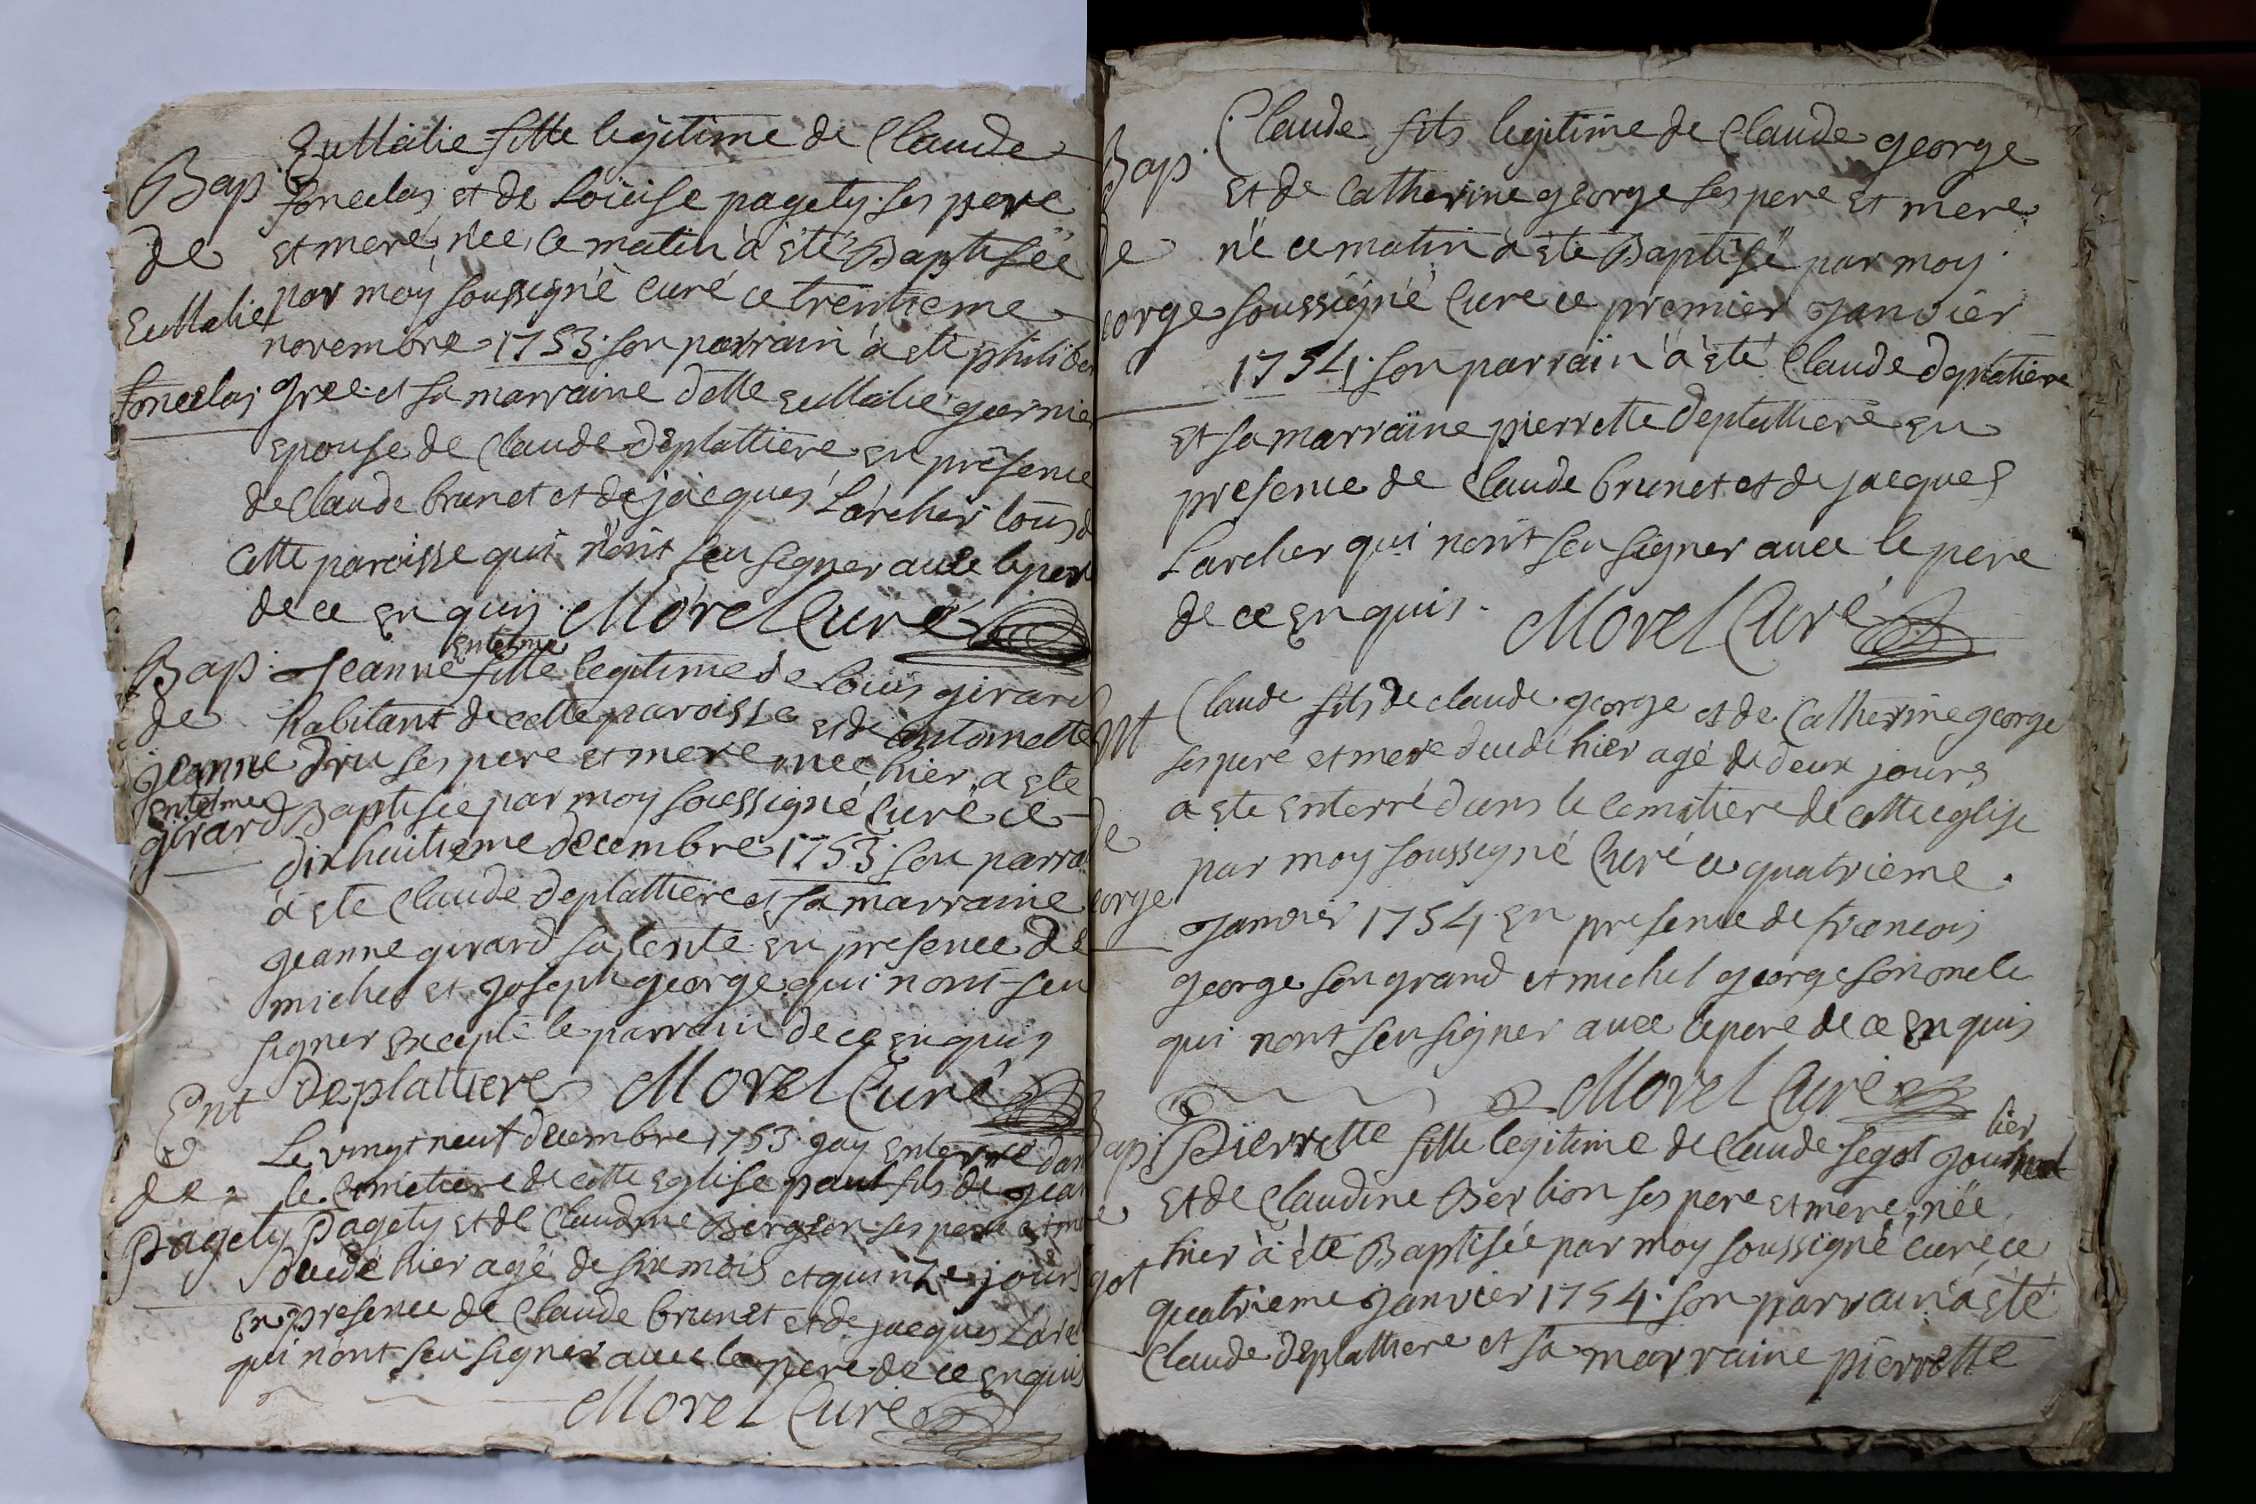 Eullalie fille legitime de Claude
Bap foncelas et de Loüise pagety ses pere
de et mere, née ce matin à été Baptisée
Eullalie par moy soussigné curé ce trentieme
novembre 1753. son parrain à eté philiber
foncelas gree et sa marraine delle eullalie garnier
epouse de Claude Deplattiere en présence
de Claude brunet et de jacques Larcher tous d
cette paroisse qui n'ont sçu signer avec le pere
de ce enquis. Morel Curé
entelme
Bap: Jeanne fille legitime de Loüis girard
de habitant de cette paroisse et de antoinette
jeanne Dru ses pere et mere née hier a ete
entelme
girard Baptisée par moy soussigné Curé ce
dixhuitieme decembre 1753. son parra
à ete Claude Deplattiere et sa marraine
jeanne girard sa tente en presence de
michel et joseph george qui n'ont sçu
signer excepté le parrain de ce enquis
Deplattiere Morel Curé
Ent Le vingt neuf decembre 1753 jay enterré dan
de le cemetiere de cette Eglise paul fils de jean
Pagety Pagety et de Claudine Bergeon ses pere et me
decedé hier agé de six mois et quinze jours
en presence de Claude brunet et de jacques Larc
qui n'ont sçu signer avec le pere de ce enquis
Morel Curé
Claude fils legitime de Claude george
Bap. et de Catherine george ses pere et mere
de né ce matin à ete Baptisé par moy
eorge soussigné Cure ce premier Janvier
1754. son parrain à été Claude deplatiere
et sa marraine pierrette deplattiere en
presence de Claude brunet et de jacques
Larcher qui n'ont sçu signer avec le pere
de ce enquis. Morel Curé
Ent Claude fils de claude george et de Catherine george
ses pere et mere decedé hier agé de deux jours
a ete enterré dans le cemitiere de cette église
de par moy soussigné Curé ce quatrieme
eorge Janvier 1754 en presence de francois
george son grand et michel george son oncle
qui n'ont sçu signer avec le pere de ce enquis
Morel Curé
lier
Bap: Pierrette fille legitime de Claude segot
et de Claudine Berlion ses pere et mere, née
hier à été Baptisée par moy soussigné curé ce
got quatrieme janvier 1754. son parrain a été
Claude deplattiere et sa marraine pierrette